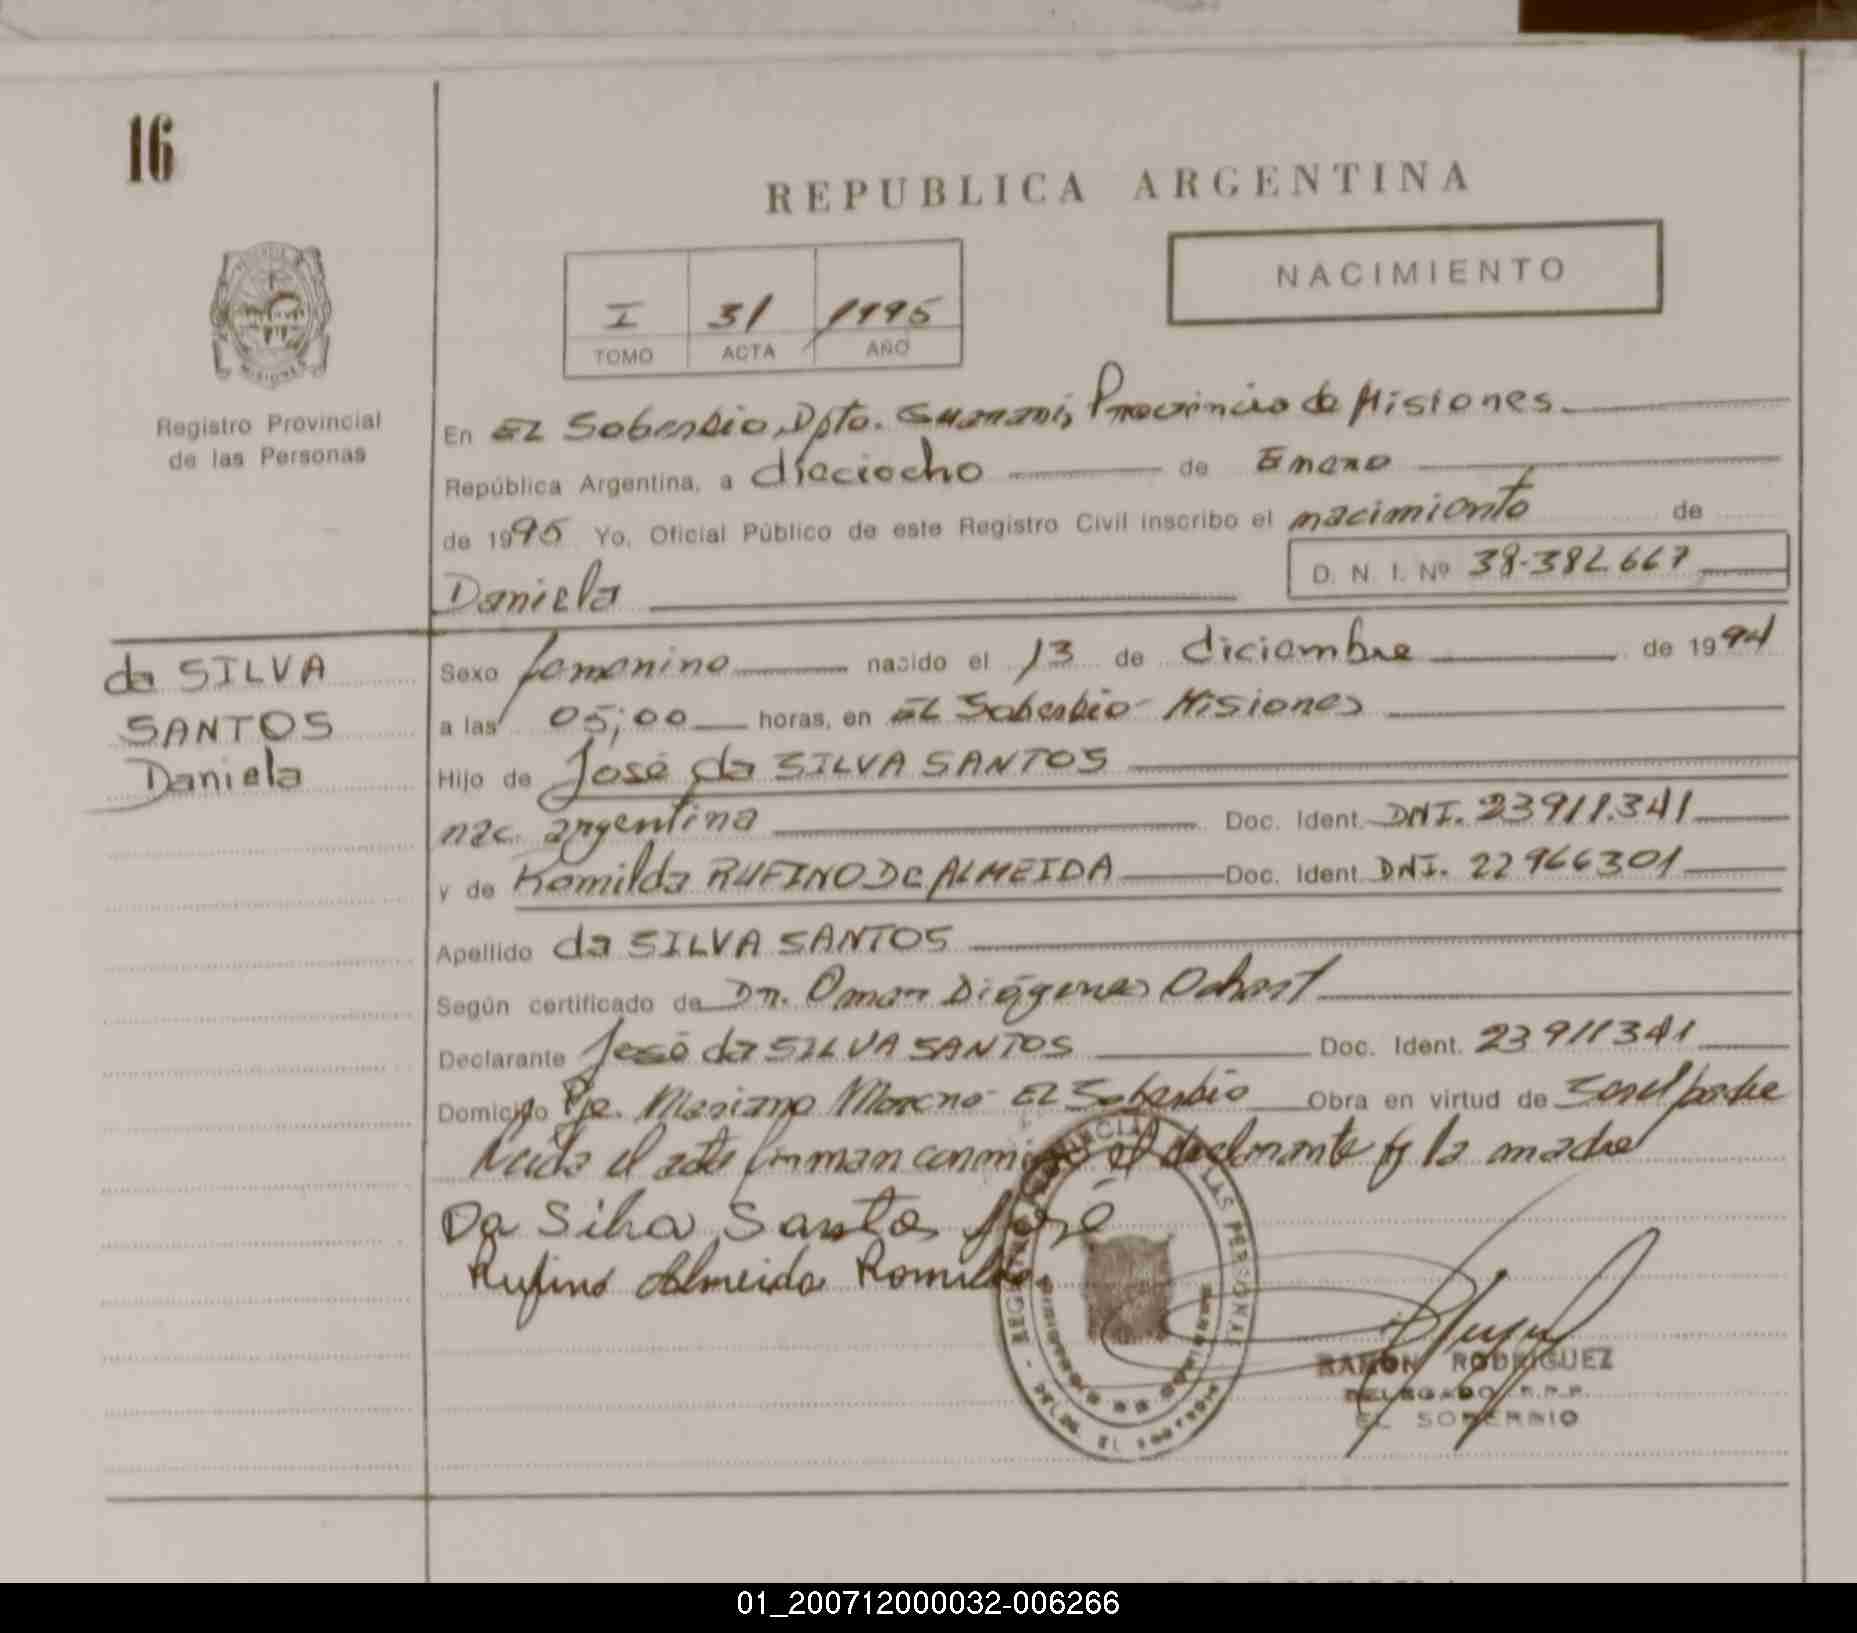 16
REPUBLICA ARGENTINA
NACIMIENTO
I 31 1995
TOMO ACTA AÑO
MISIONES
Registro Provincial
de las Personas
En EL Soberbio, Dpto. Guaraní, Provincia de Misiones.
República Argentina, a dieciocho de Enero
de 1995 Yo, Oficial Público de este Registro Civil inscribo el nacimiento de
Daniela D. N. I. Nº 38.382.667
da SILVA
SANTOS
Daniela
Sexo femenino nacido el 13 de diciembre de 1994
a las 05;00 horas, en EL Soberbio - Misiones
Hijo de José da SILVA SANTOS
nac. argentina Doc. Ident. DNI. 23911.341
y de Romilda RUFINO DE ALMEIDA Doc. Ident. DNI. 22966301
Apellido da SILVA SANTOS
Según certificado de Dr. Omar Diógenes
Declarante José da SILVA SANTOS Doc. Ident. 23911341
Domicilio Pje. Mariano Moreno - EL Soberbio Obra en virtud de ser el padre
Leida el acta firman conmigo el declarante y la madre
Da Silva Santos José
Rufino Almeida Romilda
RAMON RODRIGUEZ
DELEGADO R.P.P.
EL SOBERBIO
01_200712000032-006266